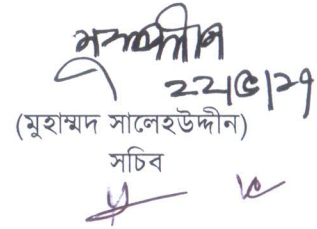 ২২/৫/২৭
(মুহাম্মদ সালেহউদ্দীন)
সচিব